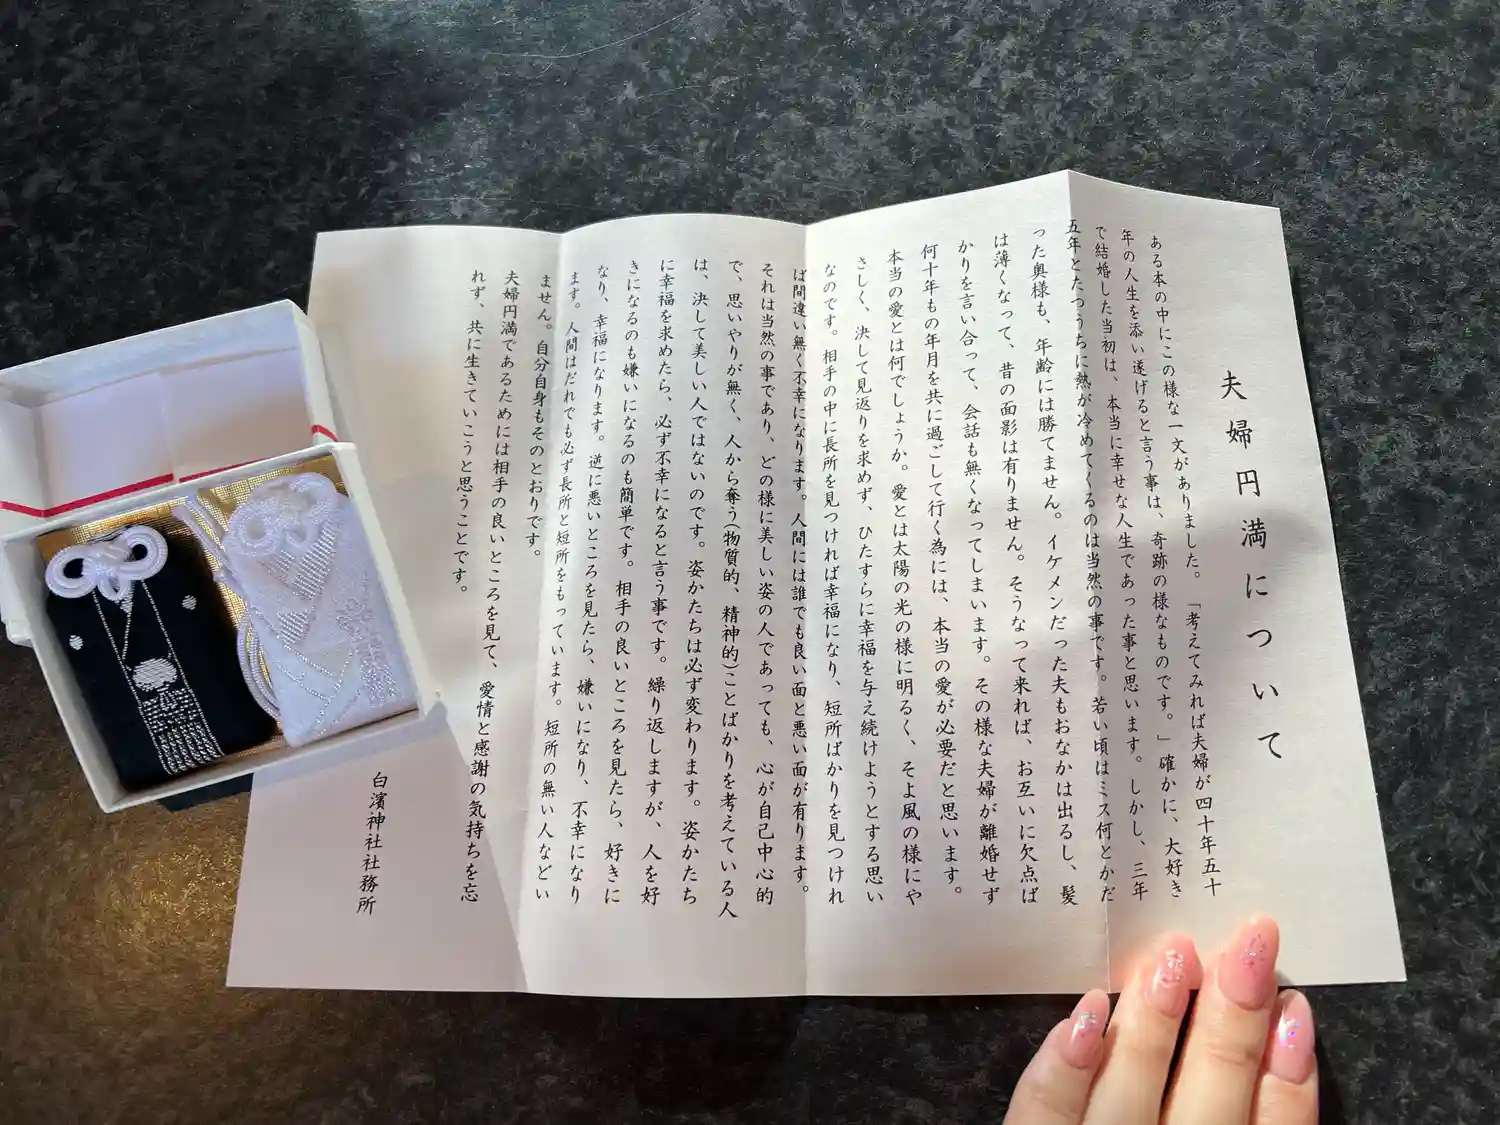 夫婦円満について
ある本の中にこの様な一文がありました。「考えてみれば夫婦が四十年五十
年の人生を添い遂げると言う事は、奇跡の様なものです。」確かに、大好き
で結婚した当初は、本当に幸せな人生であった事と思います。しかし、三年
五年とたつうちに熱が冷めてくるのは当然の事です。若い頃はミス何とかだ
った奥様も、年齢には勝てません。イケメンだった夫もおなかは出るし、髪
は薄くなって、昔の面影は有りません。そうなって来れば、お互いに欠点ば
かりを言い合って、会話も無くなってしまいます。その様な夫婦が離婚せず
何十年もの年月を共に過ごして行く為には、本当の愛が必要だと思います。
本当の愛とは何でしょうか。愛とは太陽の光の様に明るく、そよ風の様にや
さしく、決して見返りを求めず、ひたすらに幸福を与え続けようとする思い
なのです。相手の中に長所を見つければ幸福になり、短所ばかりを見つけれ
ば間違い無く不幸になります。人間には誰でも良い面と悪い面が有ります。
それは当然の事であり、どの様に美しい姿の人であっても、心が自己中心的
で、思いやりが無く、人から奪う(物質的、精神的)ことばかりを考えている人
は、決して美しい人ではないのです。姿かたちは必ず変わります。姿かたち
に幸福を求めたら、必ず不幸になると言う事です。繰り返しますが、人を好
きになるのも嫌いになるのも簡単です。相手の良いところを見たら、好きに
なり、幸福になります。逆に悪いところを見たら、嫌いになり、不幸になり
ます。人間はだれでも必ず長所と短所をもっています。短所の無い人などい
ません。自分自身もそのとおりです。
夫婦円満であるためには相手の良いところを見て、愛情と感謝の気持ちを忘
れず、共に生きていこうと思うことです。
白濱神社社務所